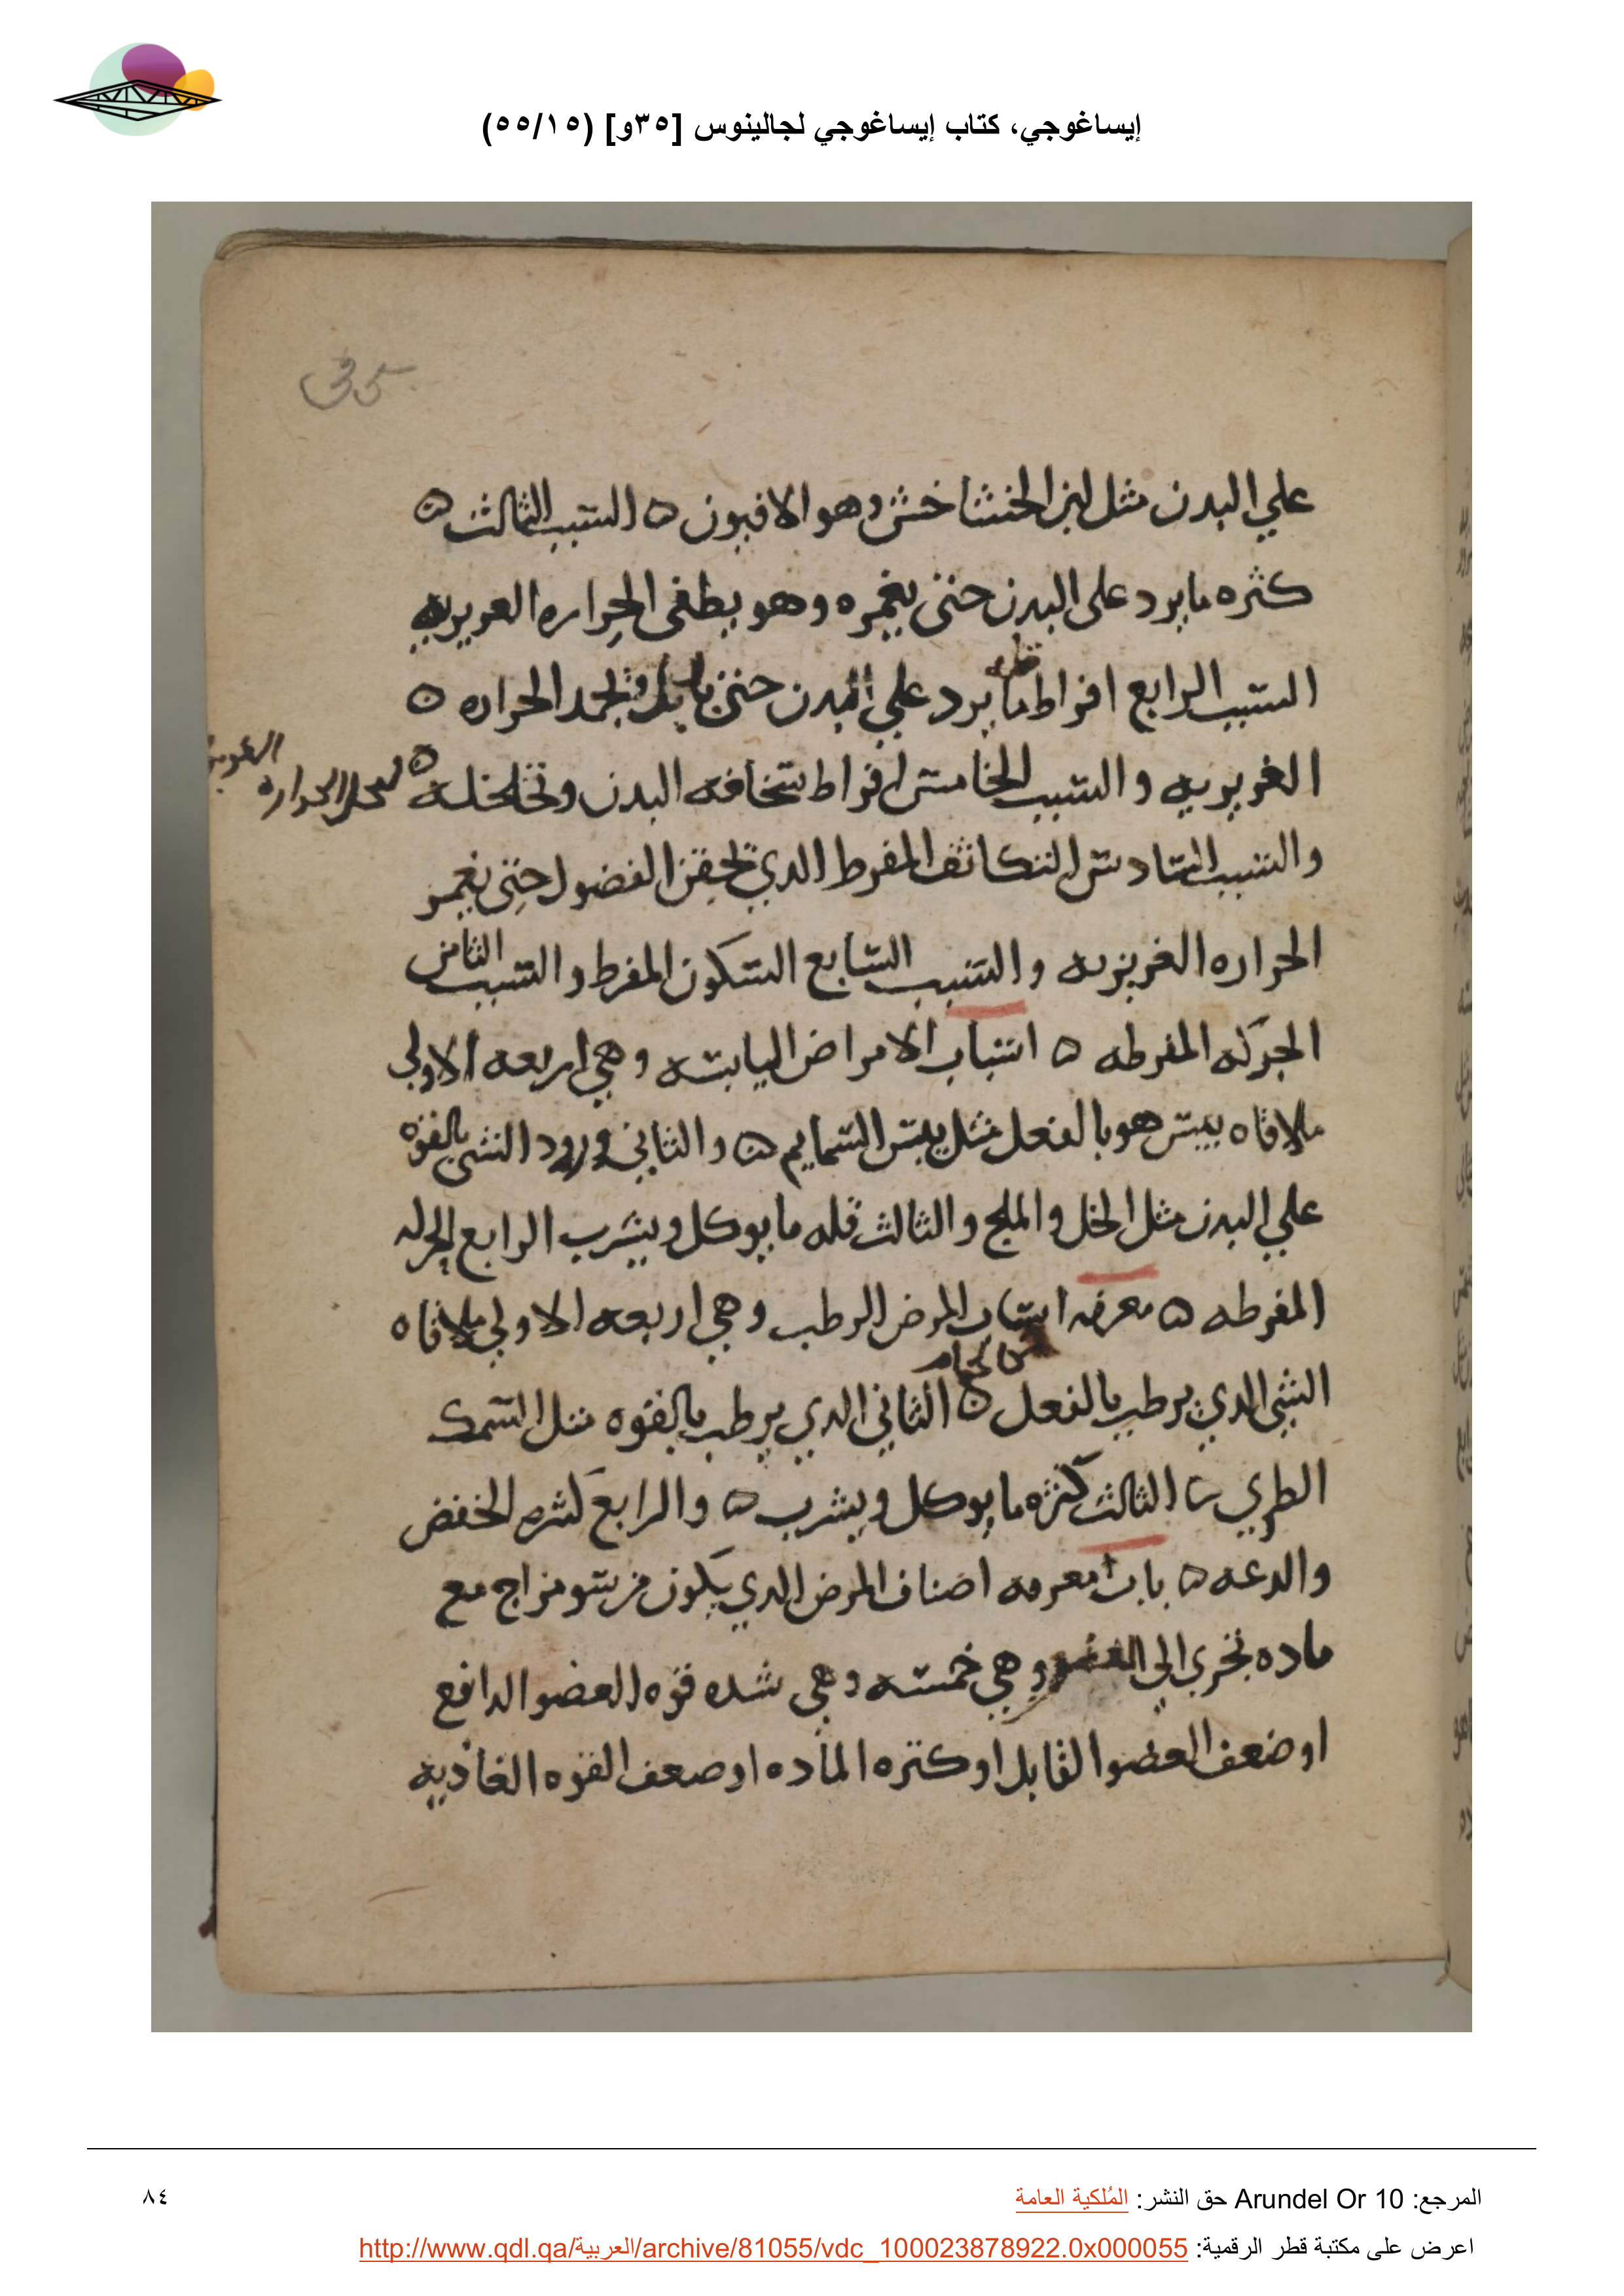 إيساغوجي، كتاب إيساغوجي لجالينوس [٣٥و] (٥٥/١٥)
35
علي البدن مثل لبن الخشخاش وهو الافيون ه السبب الثالث ه
كثره ما يرد على البدن حتى يغمره وهو يطفى الحراره الغريزيه
السبب الرابع افراط ما يرد علي البدن حتى وتجمد الحراره ه
الغريزيه والسبب الخامس افراط سخافه البدن وتخلخله ه
الحراره
والسبب السادس التكاثف المفرط الدي تحقن الفضول حتى يغمر
الحراره الغريزيه والسبب السابع السكون المفرط والسبب الثامن
الحركه المفرطه ه اسباب الامراض اليابسه وهي اربعه الاولي
ملاقاه يبس هو بالفعل مثل يبس السمايم ه والثاني ورود الشي بالقوه
علي البدن مثل الخل والملح والثالث قله ما يوكل ويشرب الرابع الحركه
المفرطه ه معرفه اسباب المرض الرطب وهي اربعه الاولي ملاقاه
الشي الدي يرطب بالفعل ه الثاني الدي يرطب بالقوه مثل السمك
الطري ه الثالث كثره ما يوكل ويشرب ه والرابع كثره الخفض
والدعه ه باب معرفه اصناف المرض الدي يكون من سو مزاج مع
ماده تجرى الي العضو وهي خمسه وهي شده قوه العضو الدافع
او ضعف العضو القابل او كثره الماده او صعف القوه الغاديه
المرجع: Arundel Or 10 حق النشر: المُلكية العامة
٨٤
اعرض على مكتبة قطر الرقمية: http://www.qdl.qa/العربية/archive/81055/vdc_100023878922.0x000055